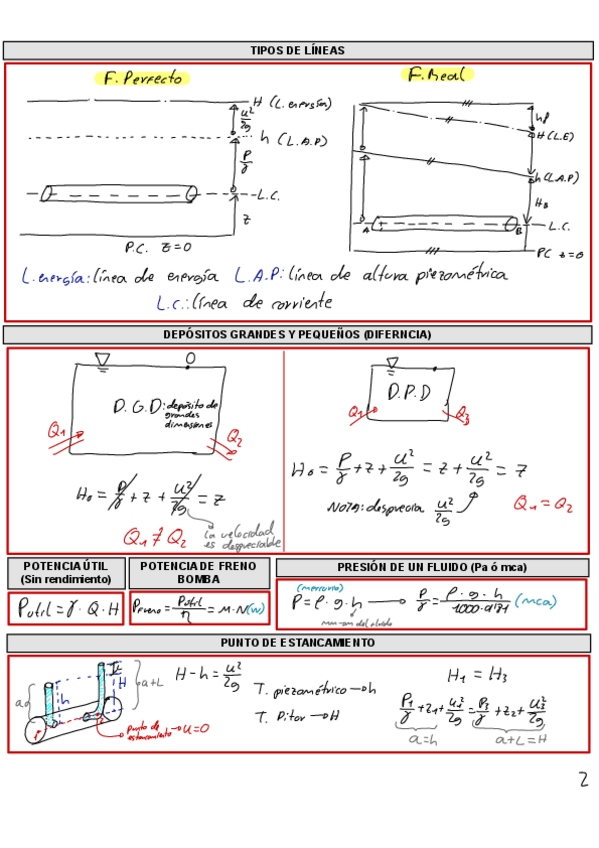 TIPOS DE LÍNEAS
F. Perfecto
H (L. energía)
u²/2g
h (L.A.P)
P/γ
L.C.
z
P.C. z=0
F. Real
hp
H(L.E)
h(L.A.P)
A
B
L.C.
PC z=0
L.energía: línea de energía L.A.P: línea de altura piezométrica
L.C.: línea de corriente
DEPÓSITOS GRANDES Y PEQUEÑOS (DIFERNCIA)
O
D.G.D: depósito de
grandes
dimensiones
Q1
Q2
H₀ = P/γ + z + u²/2g = z
Q1 ≠ Q2
la velocidad
es despreciable
D.P.D
Q1
H₀ = P/γ + z + u²/2g = z + u²/2g = z
NOTA: desprecia u²/2g
Q1 = Q2
POTENCIA ÚTIL
(Sin rendimiento)
Putil = γ · Q · H
POTENCIA DE FRENO
BOMBA
PFreno = Putil/η = M·N(w)
PRESIÓN DE UN FLUIDO (Pa ó mca)
(mercurio)
P = ρ · g · h
P/γ = ρ · g · h / 1000·9'81 (mca)
PUNTO DE ESTANCAMIENTO
a
h
H
L
a+L
1
Punto de
estancamiento → u=0
H - h = u²/2g
T. piezométrico → h
T. Pitot → H
H1 = H3
a=h
a+L = H
2